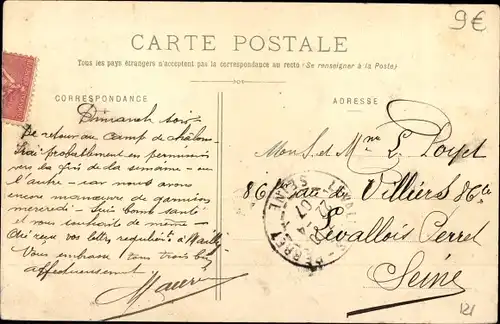 9€
CARTE POSTALE
Tous les pays étrangers n'acceptent pas la correspondance au recto (Se renseigner à la Poste)
CORRESPONDANCE
Dimanche soir
De retour au Camp de Châlons
J'irai probablement en permission
vers la fin de la semaine - ou
l'autre - car nous avons
encore manœuvre de garnison
mercredi - Suis bonne santé -
et vous souhaite de même -
reçu vos lettres
Vous embrasse tous trois bien
affectueusement
Maurice
ADRESSE
Mons. et Mme L. Poyet
86 Villiers 86
Levallois Perret
Seine
LEVALLOIS-PERRET
SEINE
07
121